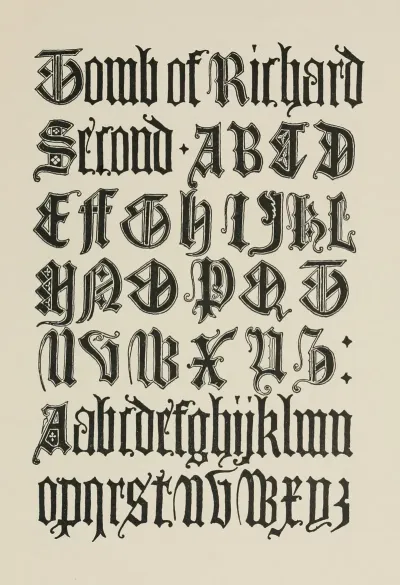 Tomb of Richard
Second · ABCD
EFGHIJKL
MNOPQT
UVWXYZ:
Aabcdefghijklmn
opqrstuvwxyz